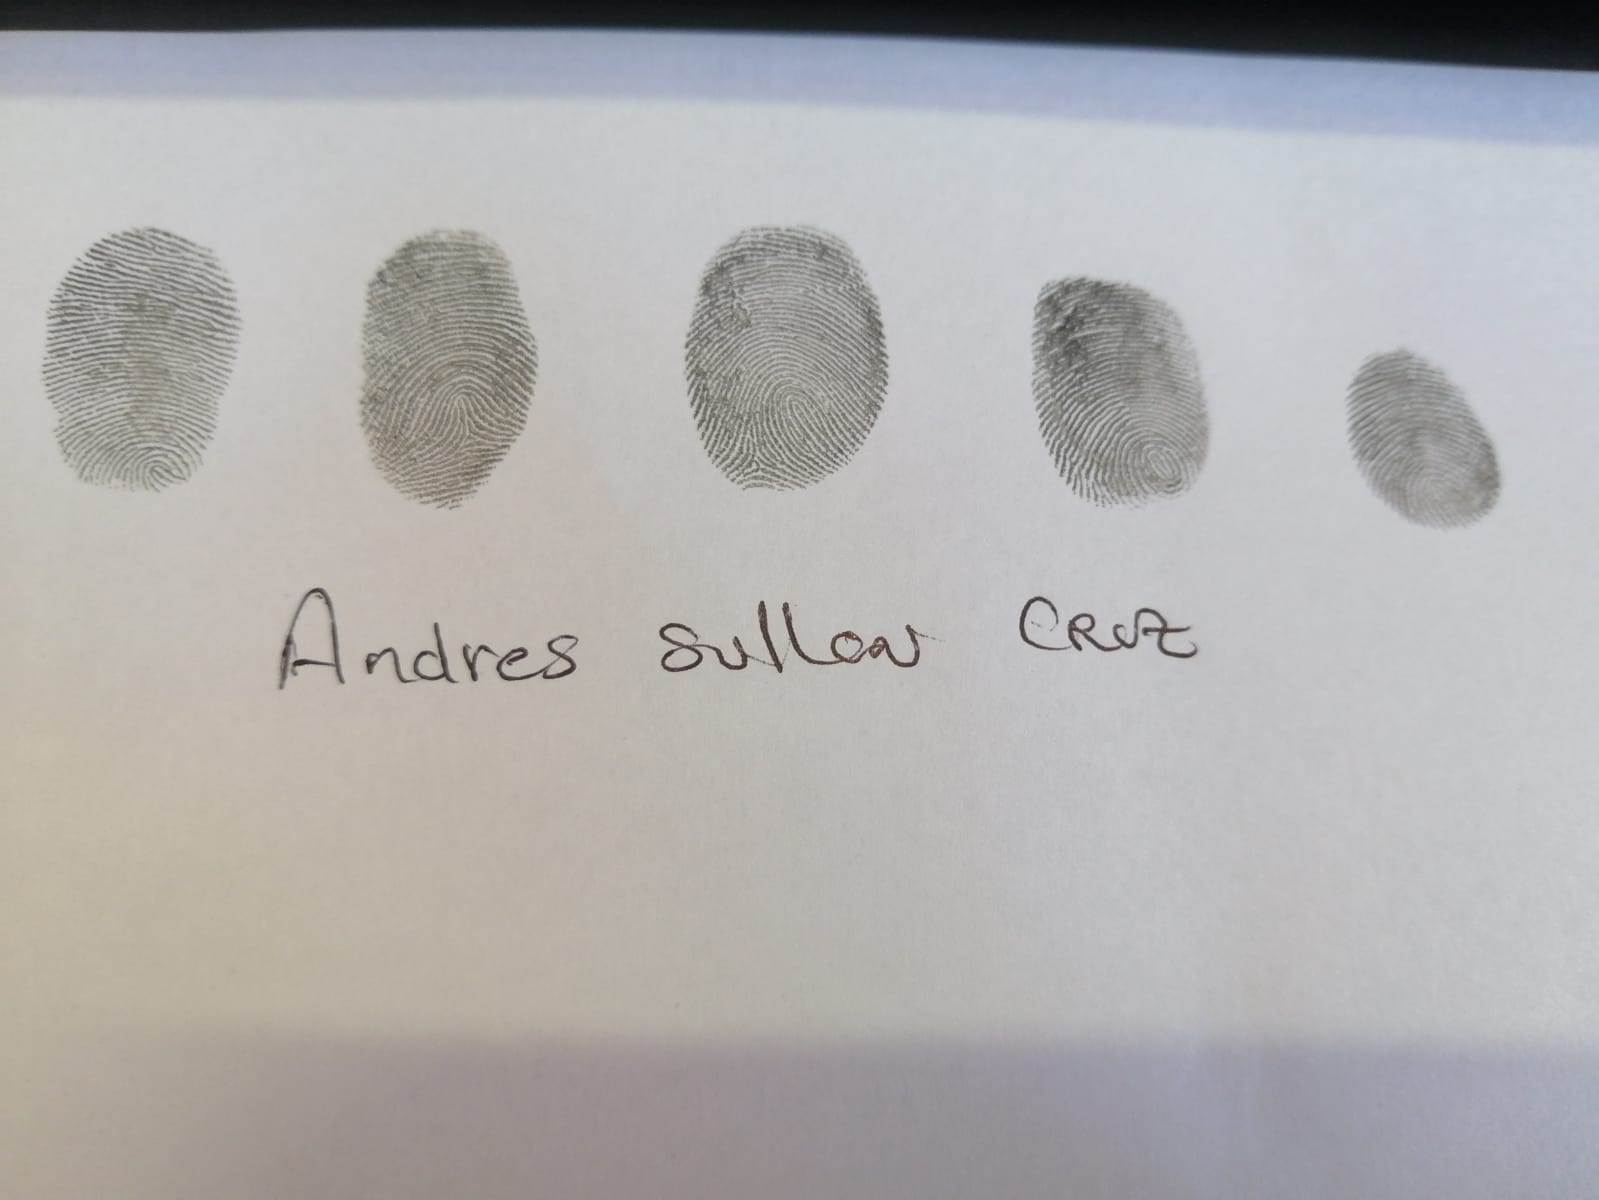 Andres Sullon CRUZ